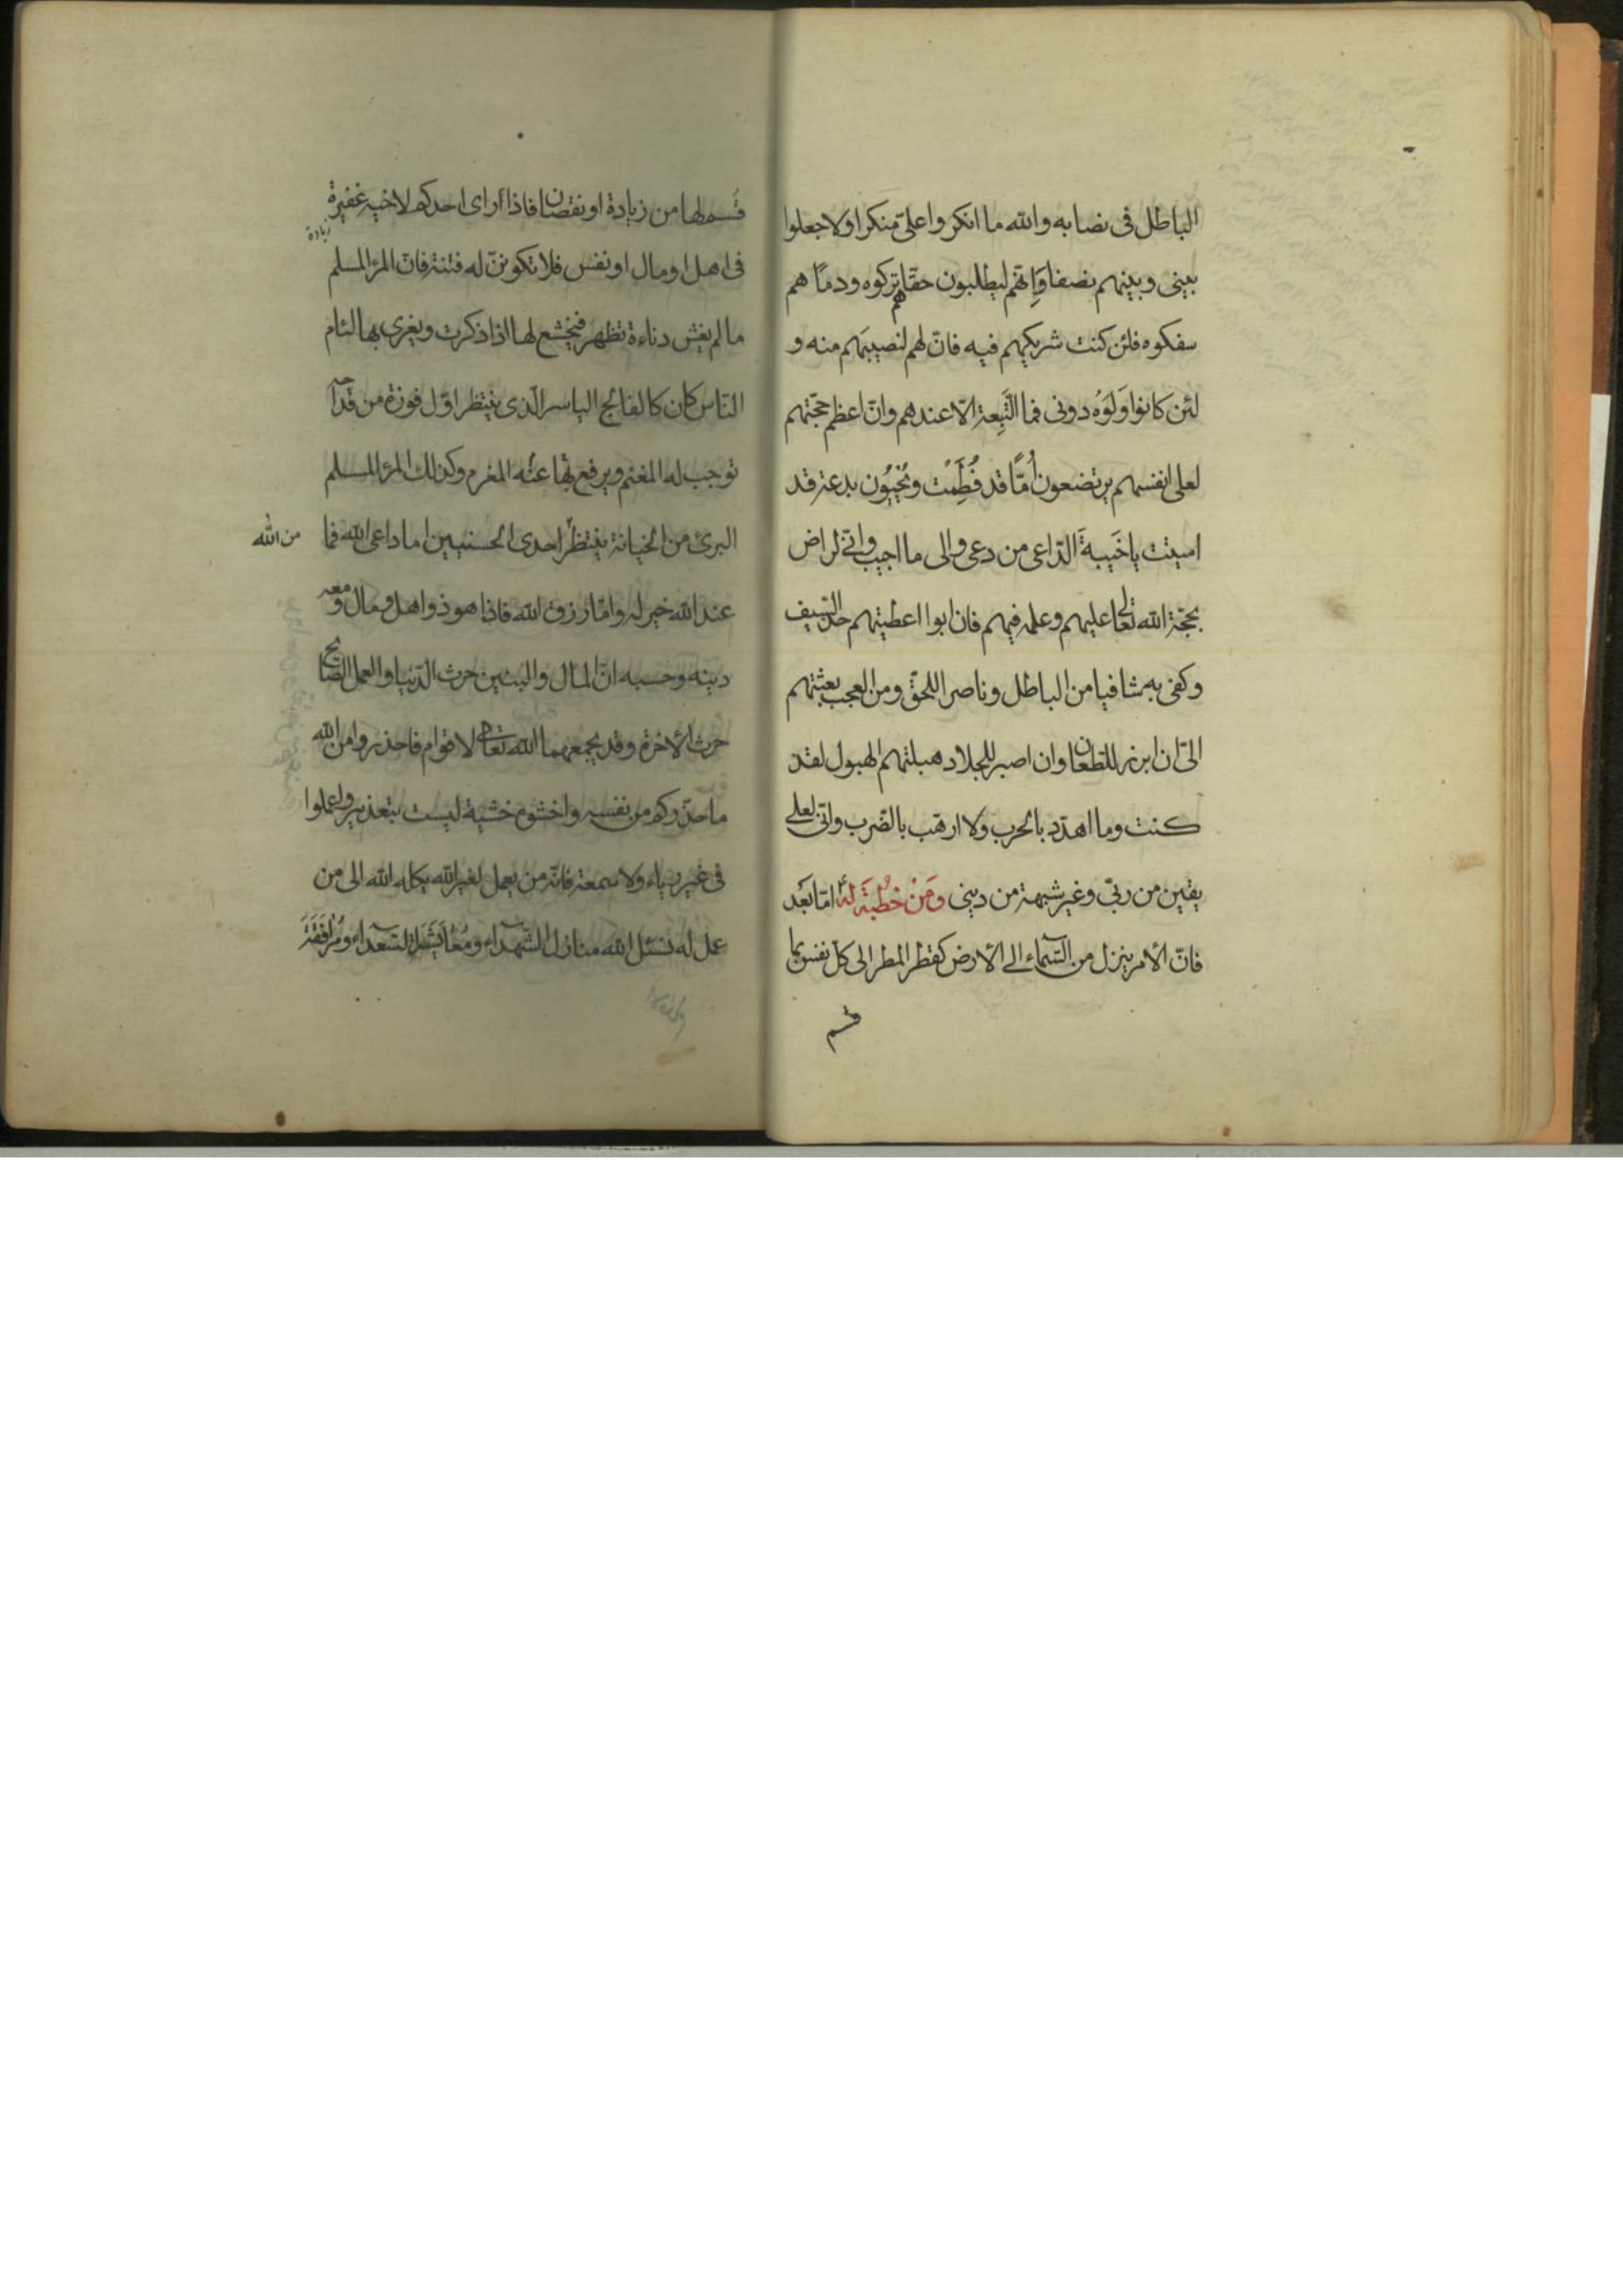 الباطل فى نصابه والله ما انكروا علىّ منكرا ولا جعلوا
بينى وبينهم نصفا وَاِنّهم ليطلبون حقّا هم تركوه ودمًا هم
سفكوه فلئن كنت شريكهم فيه فانّ لهم لنصيبَهم منه و
لئن كانوا وَلَوُه دونى فما التَّبِعة الّا عندهم وانّ اعظم حجّتهم
لعلى انفسهم يرتضعون اُمّاً قد فُطِمَت ويُحيُون بدعة قد
اميتت يا خَيبةَ الدّاعى من دعى والى ما اجيب وانّى لراض
بحجّة الله تعالى عليهم وعلمه فيهم فان ابوا اعطيتهم حدّ السّيف
وكفى به شافيا من الباطل وناصرا للحقّ ومن العجب بعثتهم
الىّ ان ابرز للطّعان وان اصبر للجلاد هبلتهم الهبول لقد
كنت وما اهدّد بالحرب ولا ارهّب بالضّرب وانّى لعلى
يقين من ربّى وغير شبهة من دينى ومَن خُطبَة لهُ امّا بَعد
فانّ الأمر ينزل من السّماء الى الأرض كقطر المطر الى كلّ نفس بما
قُسم
قُسم لها من زيادة او نقصان فاذا رأى احدكم لاخيه غفيرة
زيادة
فى اهل او مال او نفس فلا تكوننّ له فتنة فانّ المرء المسلم
ما لم يغش دناءة تظهر فيخشع لها اذا ذكرت ويغرى بها لئام
النّاس كان كالفالج الياسر الّذى ينتظر اوّل فوزة من قداحه
توجب له المغنم ويرفع بها عنه المغرم وكذلك المرء المسلم
البرئ من الخيانة ينتظر احدى الحسنيين اما داعى الله فما
من الله
عند الله خير له وامّا رزق الله فاذا هو ذو اهل ومال ومعه
دينه وحسبه انّ المال والبنين حرث الدّنيا والعمل الصّالح
حرث الأخرة وقد يجمعهما الله تعالى لاقوام فاحذروا من الله
ما حذّركم من نفسه واخشوه خشية ليست بتعذير واعملوا
فى غير رياء ولا سمعة فانّه من يعمل لغير الله يكله الله الى من
عمل له نسئل الله منازل الشّهداء ومُعَايَشَة السّعداء ومُرَافَقَةَ